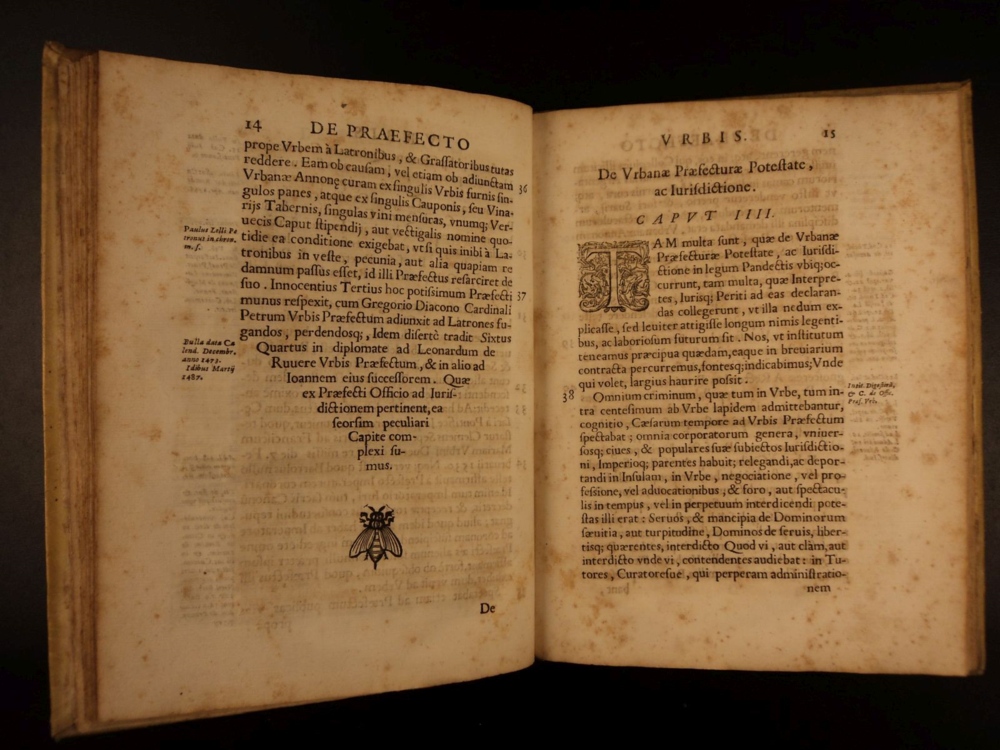 14 DE PRAEFECTO
prope Vrbem à Latronibus, & Grassatoribus tutas
reddere. Eam ob causam, vel etiam ob adiunctam
Vrbanæ Annonę curam ex singulis Vrbis furnis sin- 36
gulos panes, atque ex singulis Cauponis, seu Vina-
rijs Tabernis, singulas vini mensuras, vnumq; Ver-
uecis Caput stipendij, aut vectigalis nomine quo-
tidie ea conditione exigebat, vt si quis inibi à La-
tronibus in veste, pecunia, aut alia quapiam re
damnum passus esset, id illi Præfectus resarciret de
suo. Innocentius Tertius hoc potissimum Præfecti 37
munus respexit, cum Gregorio Diacono Cardinali
Petrum Vrbis Præfectum adiunxit ad Latrones fu-
gandos, perdendosq; Idem disertè tradit Sixtus
Quartus in diplomate ad Leonardum de
Ruuere Vrbis Præfectum, & in alio ad
Ioannem eius successorem. Quæ
ex Præfecti Officio ad Iuris-
dictionem pertinent, ea
seorsim peculiari
Capite com-
plexi su-
mus.
De
Paulus Lelli Pe
tronus in chron.
m. s.
Bulla data Ca
lend. Decembr.
anno 1475.
Idibus Martij
1487.
VRBIS. 15
De Vrbanæ Præfecturæ Potestate,
ac Iurisdictione.
CAPVT IIII.
IAM multa sunt, quæ de Vrbanæ
Præfecturæ Potestate, ac Iurisdi-
ctione in legum Pandectis vbiq; oc-
currunt, tam multa, quæ Interpre-
tes, Iurisq; Periti ad eas declaran-
das collegerunt, vt illa nedum ex-
plicasse, sed leuiter attigisse longum nimis legenti-
bus, ac laboriosum futurum sit. Nos, vt institutum
teneamus præcipua quædam, eaque in breuiarium
contracta percurremus, fontesq; indicabimus; Vnde
qui volet, largius haurire possit.
38 Omnium criminum, quæ tum in Vrbe, tum in-
tra centesimum ab Vrbe lapidem admittebantur,
cognitio, Cæsarum tempore ad Vrbis Præfectum
spectabat; omnia corporatorum genera, vniuer-
sosq; ciues, & populares suæ subiectos Iurisdictio-
ni, Imperioq; parentes habuit; relegandi, ac depor-
tandi in Insulam, in Vrbe, negociatione, vel pro-
fessione, vel aduocationibus, & foro, aut spectacu-
lis in tempus, vel in perpetuum interdicendi pote-
stas illi erat: Seruos, & mancipia de Dominorum
sæuitia, aut turpitudine, Dominos de seruis, liber-
tisq; quærentes, interdicto Quod vi, aut clàm, aut
interdicto vnde vi, contendentes audiebat: in Tu-
tores, Curatoresue, qui perperam administratio-
nem
& C. de Offic.
Præf. Vrb.